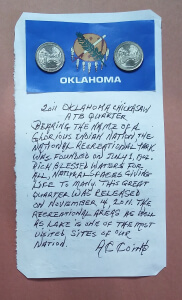 OKLAHOMA
2011 OKLAHOMA CHICKASAW
ATB QUARTER
BEARING THE NAME OF A
GLORIOUS INDIAN NATION THE
NATIONAL RECREATIONAL PARK
WAS FOUNDED ON JULY 1, 1902.
RICH BLESSED WATERS FOR
ALL, NATURAL GIVING
LIFE TO MANY. THIS GREAT
QUARTER WAS RELEASED
ON NOVEMBER 14, 2011. THE
RECREATIONAL AREAS AS WELL
AS LAKE IS ONE OF THE MOST
VISITED SITES OF OUR
NATION.